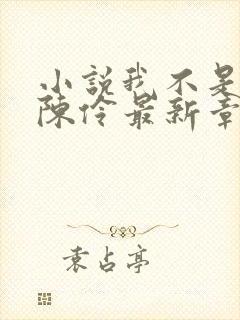 小説我不是
陳伶最新章
袁占亭